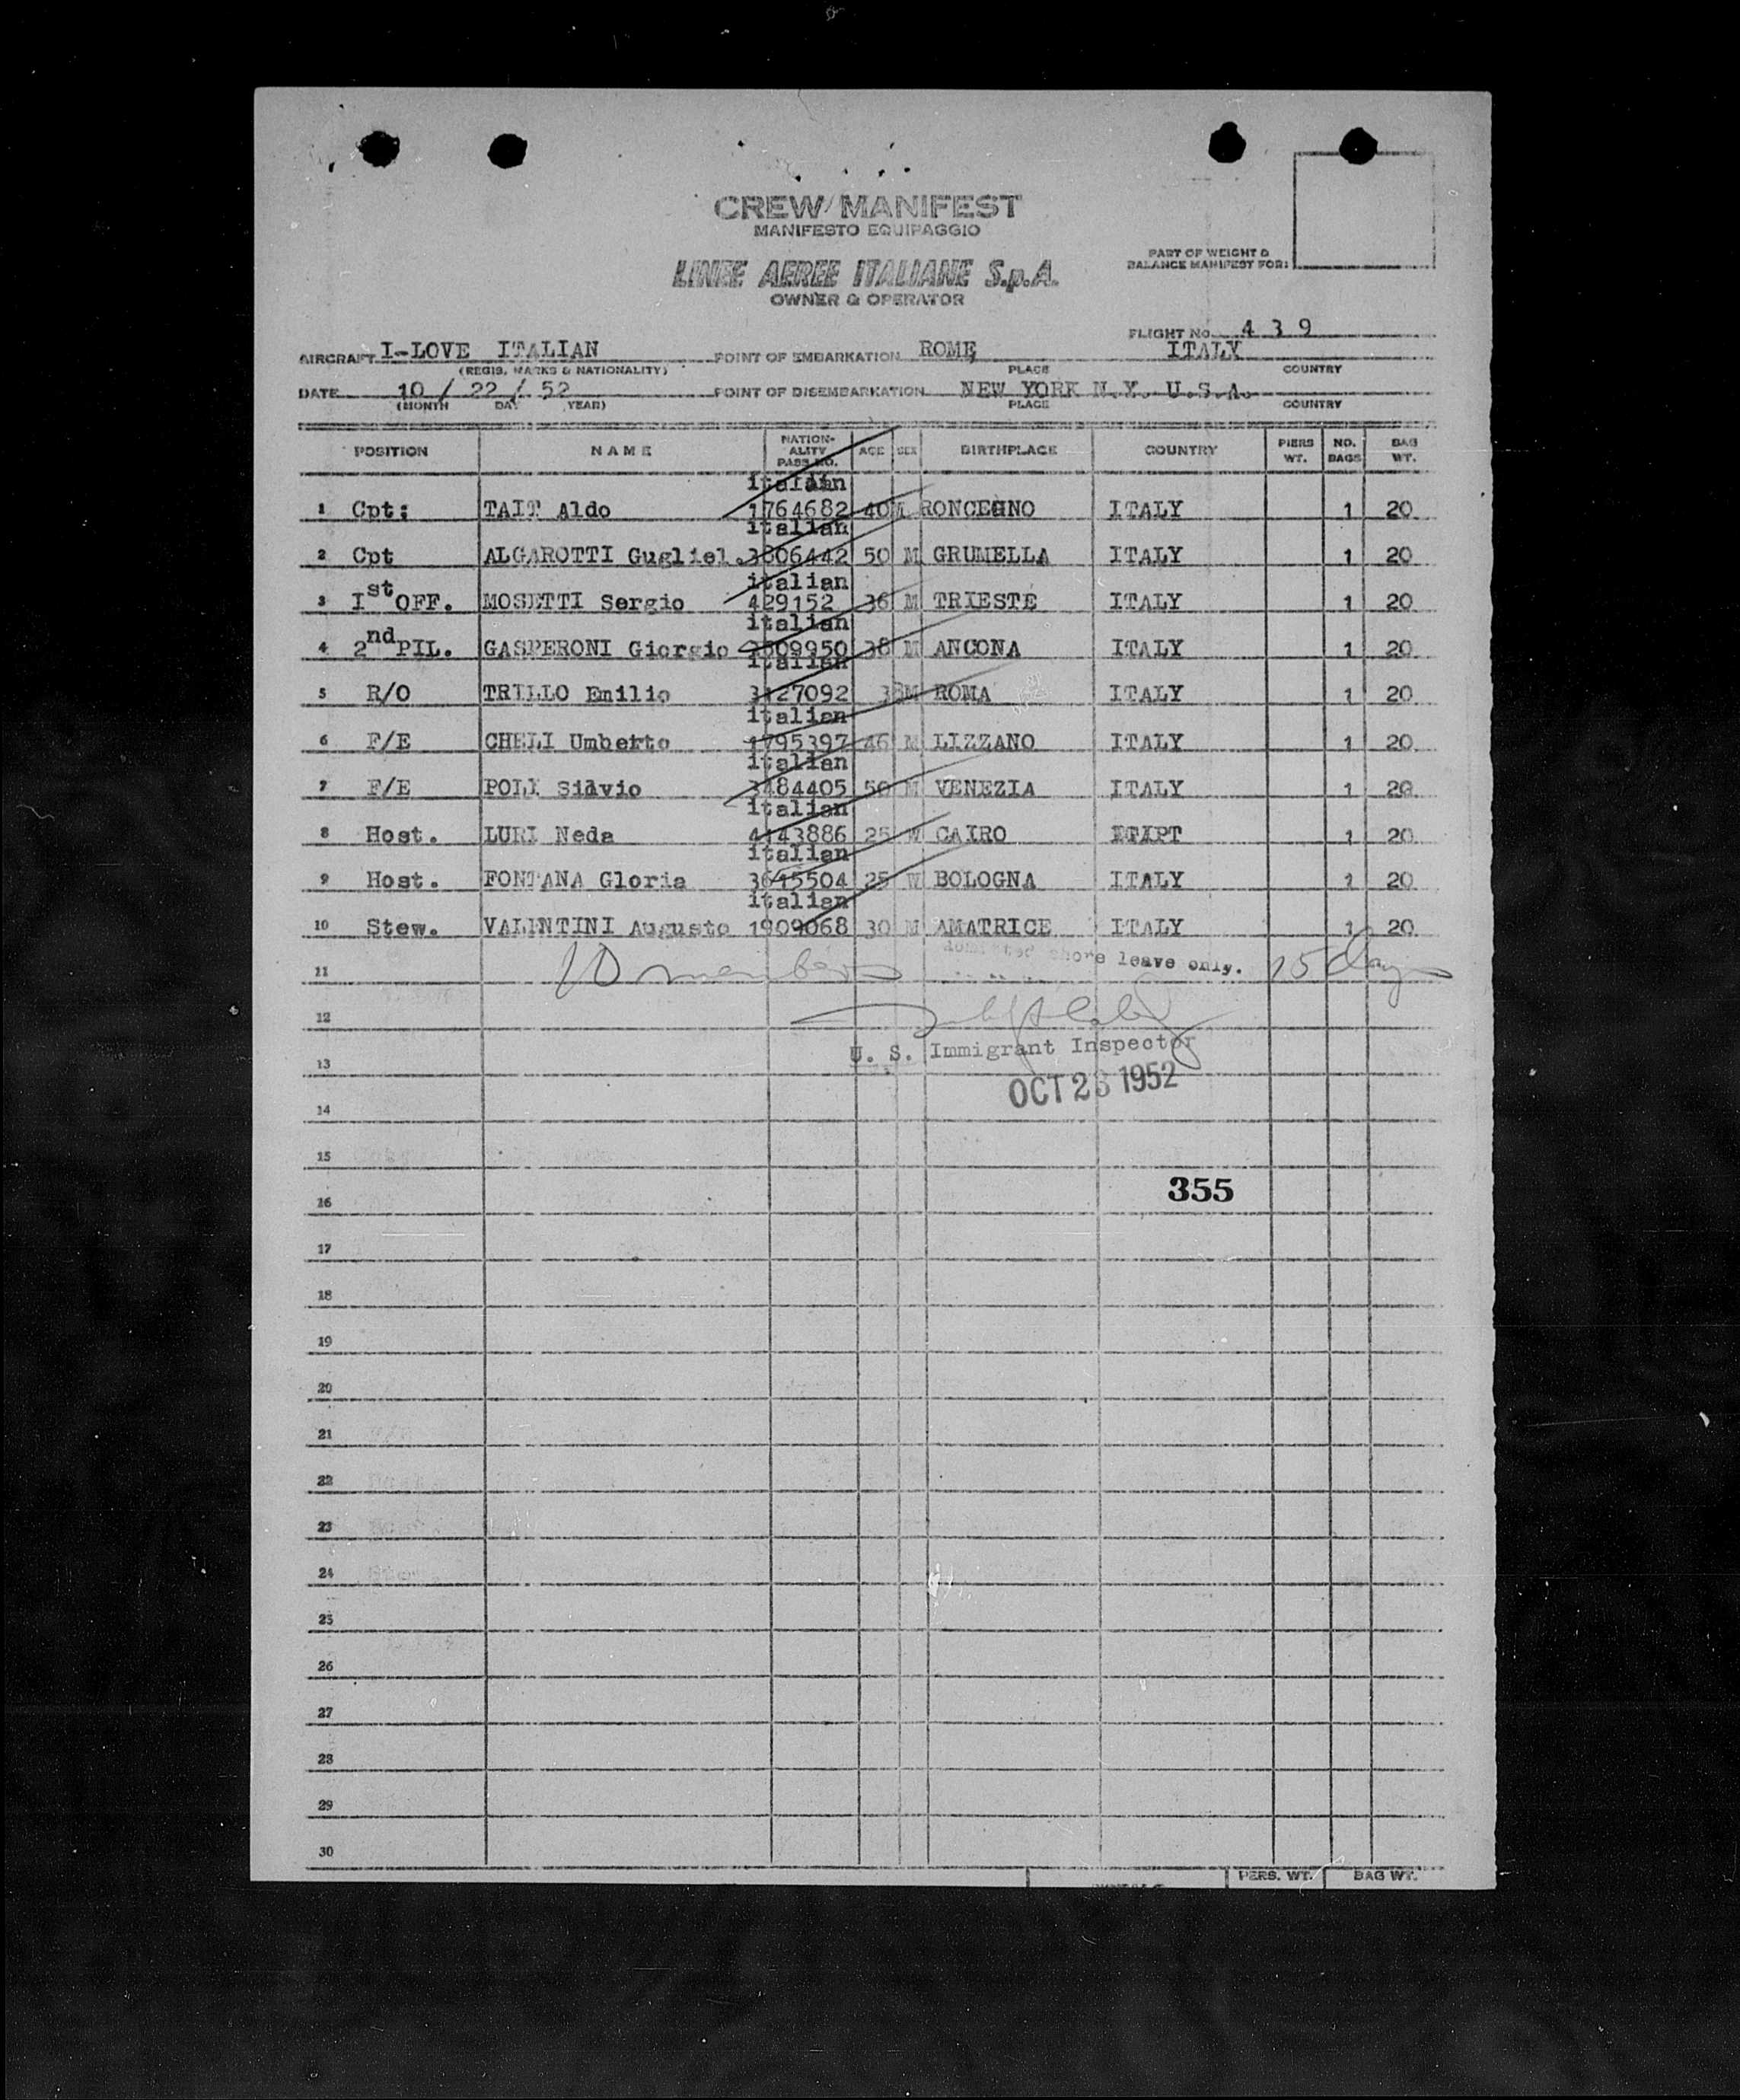 CREW MANIFEST
MANIFESTO EQUIPAGGIO
LINEE AEREE ITALIANE S.p.A.
OWNER & OPERATOR
PART OF WEIGHT &
BALANCE MANIFEST FOR:
FLIGHT No. 4 3 9
AIRCRAFT I-LOVE ITALIAN POINT OF EMBARKATION ROME ITALY
(REGIS. MARKS & NATIONALITY) PLACE COUNTRY
DATE 10 / 22 / 52 POINT OF DISEMBARKATION NEW YORK N.Y. U.S.A.
(MONTH DAY YEAR) PLACE COUNTRY
POSITION NAME NATION-ALITY PASS NO. AGE SEX BIRTHPLACE COUNTRY PIERS WT. NO. BAGS BAG WT.
italian
1 Cpt: TAIT Aldo 1764682 40 M RONCEGNO ITALY 1 20
italian
2 Cpt ALGAROTTI Gugliel. 3806442 50 M GRUMELLA ITALY 1 20
italian
3 Ist OFF. MOSETTI Sergio 429152 36 M TRIESTE ITALY 1 20
italian
4 2nd PIL. GASPERONI Giorgio 3509950 38 M ANCONA ITALY 1 20
italian
5 R/O TRILLO Emilio 3127092 38 M ROMA ITALY 1 20
italian
6 F/E CHELI Umberto 1795397 46 M LIZZANO ITALY 1 20
italian
7 F/E POLI Silvio 3484405 50 M VENEZIA ITALY 1 20
italian
8 Host. LURI Neda 4143886 25 W CAIRO 1 20
italian
9 Host. FONTANA Gloria 3615504 25 W BOLOGNA ITALY 1 20
italian
10 Stew. VALENTINI Augusto 1909068 30 M AMATRICE ITALY 1 20
11 10 members Admitted shore leave only. 15 days
12
U. S. Immigrant Inspector
13
OCT 23 1952
14
15
355
16
17
18
19
20
21
22
23
24
25
26
27
28
29
30
PERS. WT. BAG WT.